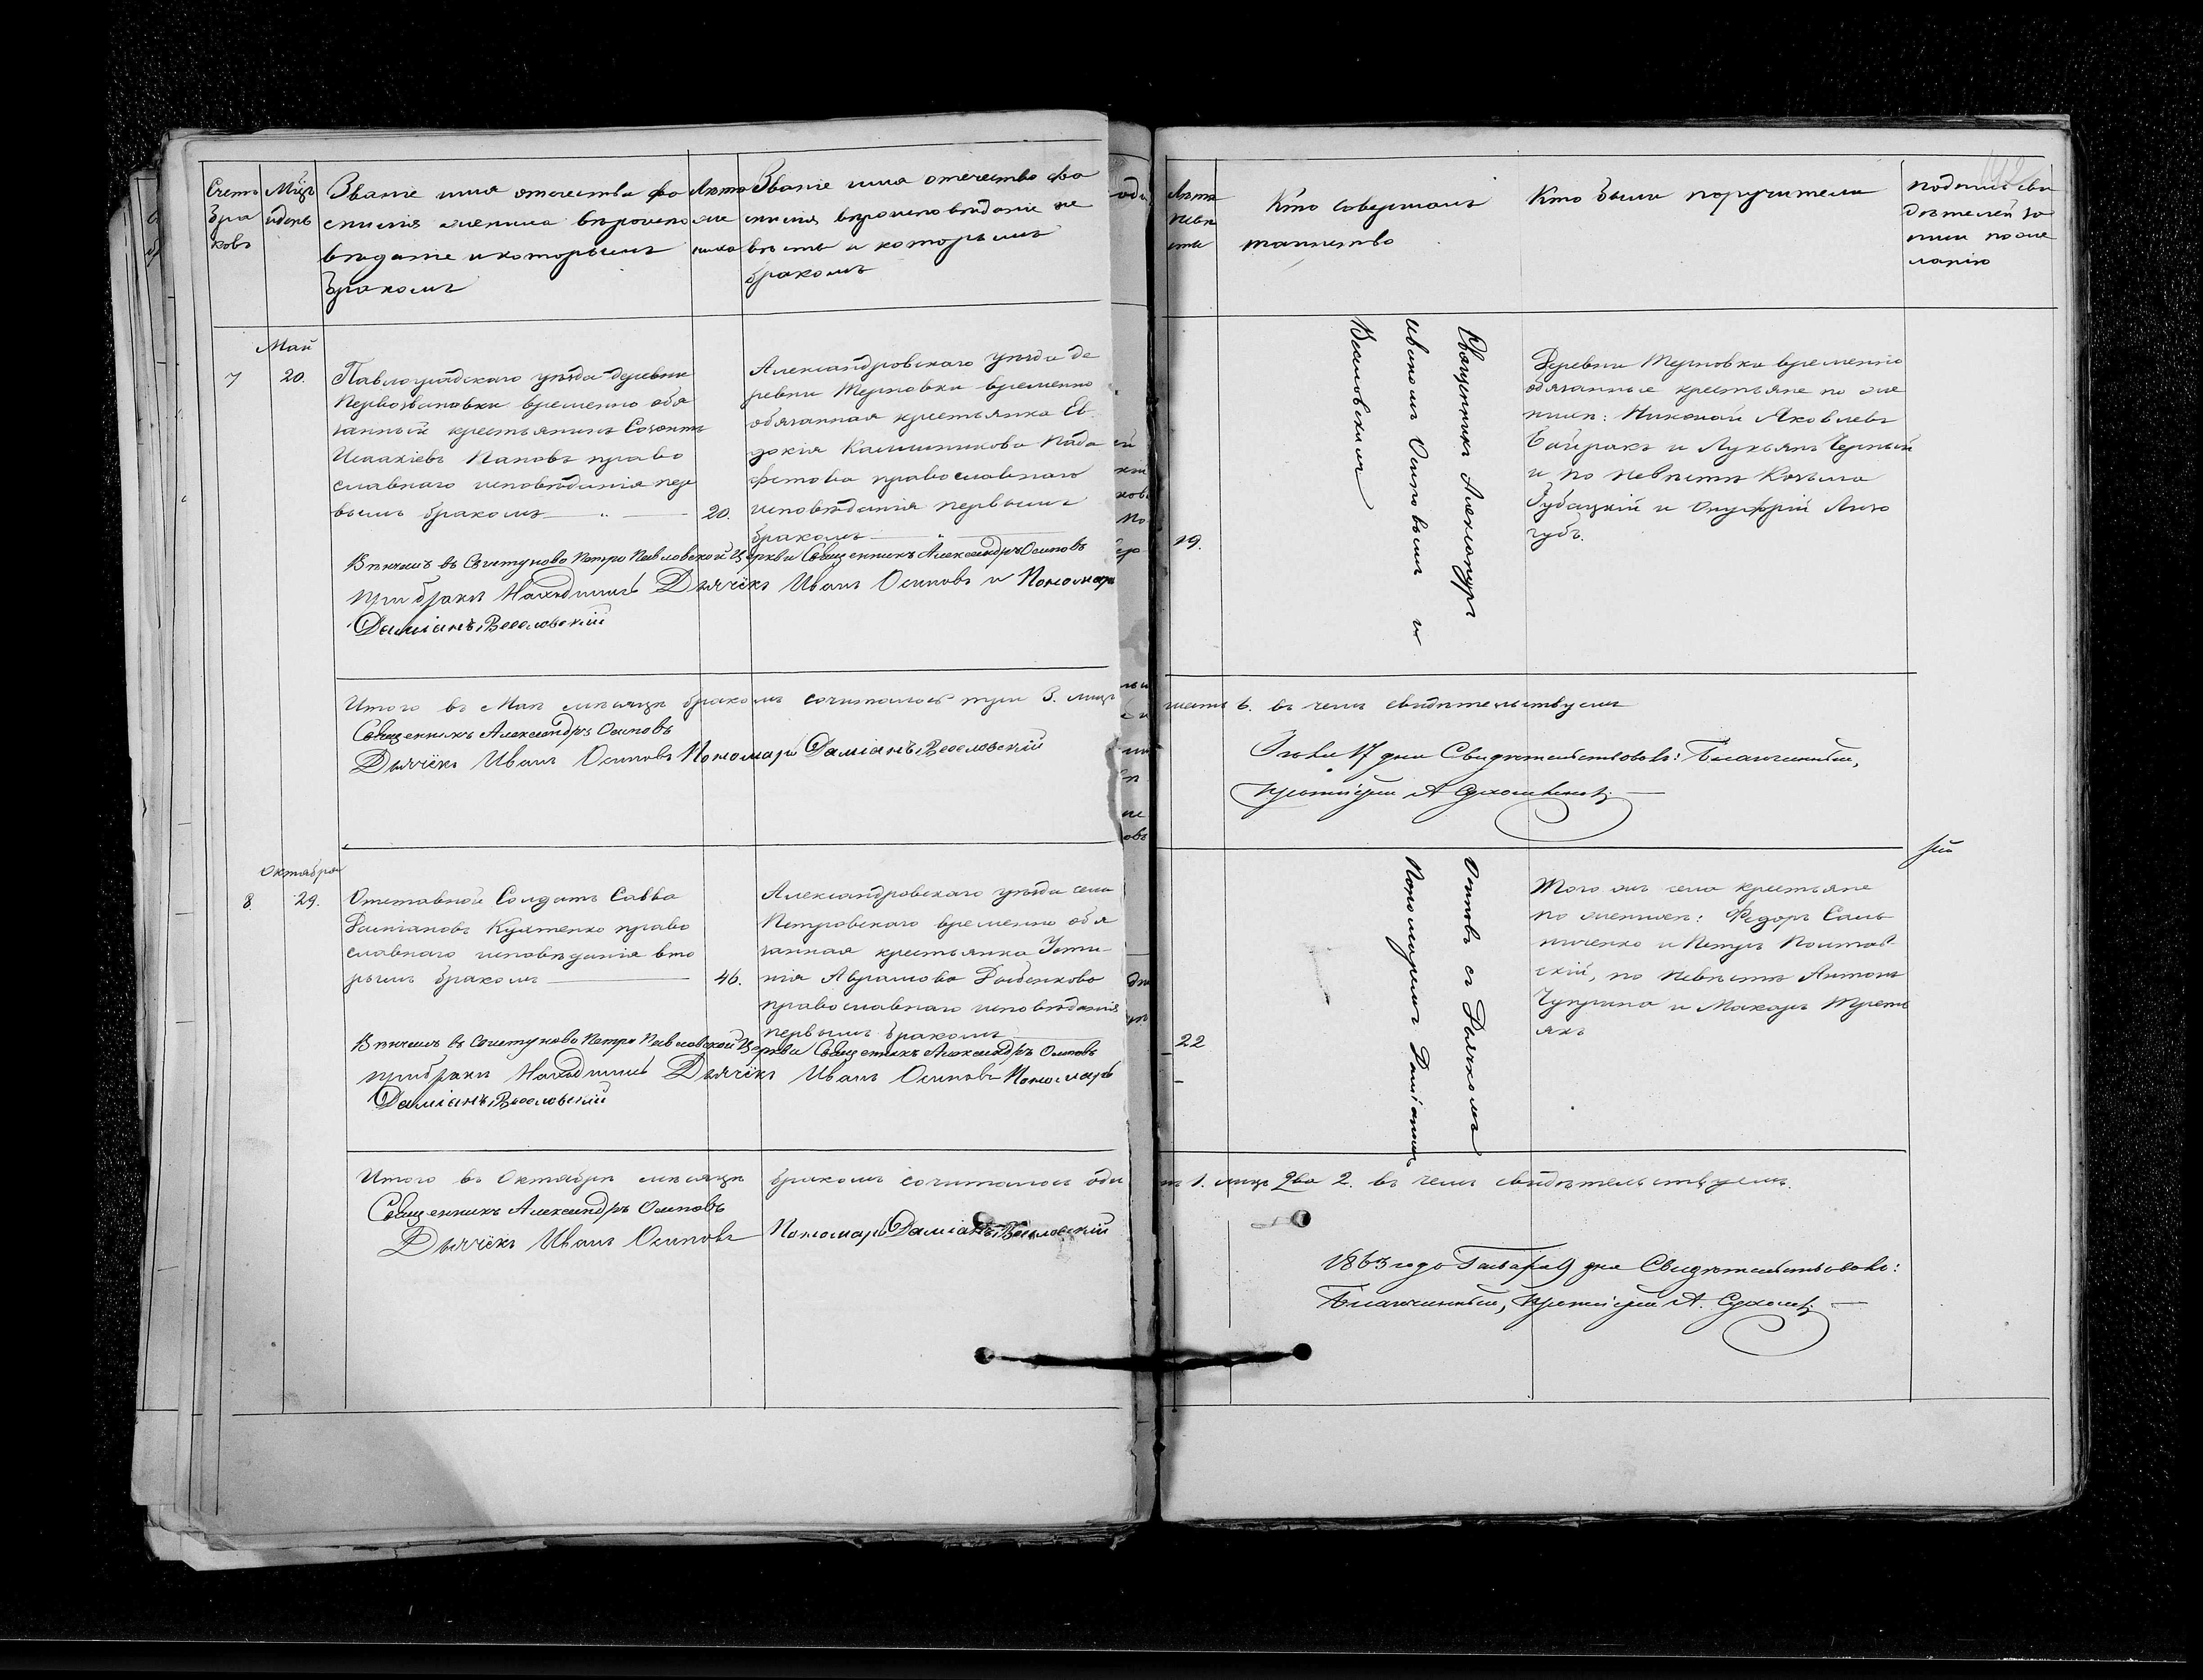 Счетъ
бра
ковъ
Мѣц
и день
Званіе имя отечество фа
милія жениха вѣроиспо
вѣданіе и которымъ
бракомъ
Лѣта
же
ниха
Званіе имя отечество фа
милія вѣроисповѣданіе не
вѣсты и которымъ
бракомъ
Лѣта
невѣ
сты
Кто совершалъ
таинство
Кто были поручители
подпись сви
дѣтелей за
писи по же
ланію
Май
7
20.
Павлоградскаго уѣзда деревни
Первозвановки временно обя
занный крестьянинъ Созонтъ
Исаакіевъ Пановъ право
славнаго исповѣданія пер
вымъ бракомъ
20.
Александровскаго уѣзда де
ревни Терновки временно
обязанная крестьянка Ев
докія Каллиникова
православнаго
исповѣданія первымъ
бракомъ
19.
Священникъ Александръ
Осиповымъ и
Деревни Терновки временно
обязанные крестьяне по же
нихѣ: Николай Яковлевъ
Байракъ и Лукьянъ Черный
и по невѣстѣ Козьма
Губацкій и Онуфрій Лизо
губъ.
Вѣнчалъ въ Петро Павловской Церкви Священникъ Александръ Осиповъ
при бракѣ Находились Дьячёкъ Иванъ Осиповъ и Пономарь
Даміанъ Веселовскій
Итого въ Маѣ мѣсяцѣ бракомъ сочиталось три 3. лицъ
шесть 6. въ чемъ свидѣтельствуемъ
Священникъ Александръ Осиповъ
Дьячёкъ Иванъ Осиповъ Пономарь Даміанъ Веселовскій
17 дня Свидѣтельствовалъ: Благочинный,
Протоіерей А
Октября
8.
29.
Отставной Солдатъ Савва
Даміановъ право
славнаго исповѣданія вто
рымъ бракомъ
46.
Александровскаго уѣзда села
Петровскаго временно обя
занная крестьянка Усти-
нія Аврамова
православнаго исповѣданія
первымъ бракомъ
22
съ Дьячкомъ
Пономаремъ Даміаномъ
Того жъ села крестьяне
по женихѣ: Федоръ Саль
ниченко и Петръ Полтав
скій, по невѣстѣ Антонъ
Чуприна и Макаръ Треть
якъ
Вѣнчалъ въ Петро Павловской Церкви Священникъ Александръ Осиповъ
при бракѣ Находились Дьячёкъ Иванъ Осиповъ Пономарь
Даміанъ Веселовскій
Итого въ Октябрѣ мѣсяцѣ бракомъ сочиталось оди
нъ 1. лицъ два 2. въ чемъ свидѣтельствуемъ.
Священникъ Александръ Осиповъ
Дьячёкъ Иванъ Осиповъ
Пономарь Даміанъ Веселовскій
1863 года Генваря 9 дня Свидѣтельствовалъ:
Благочинный, Протоіерей А.